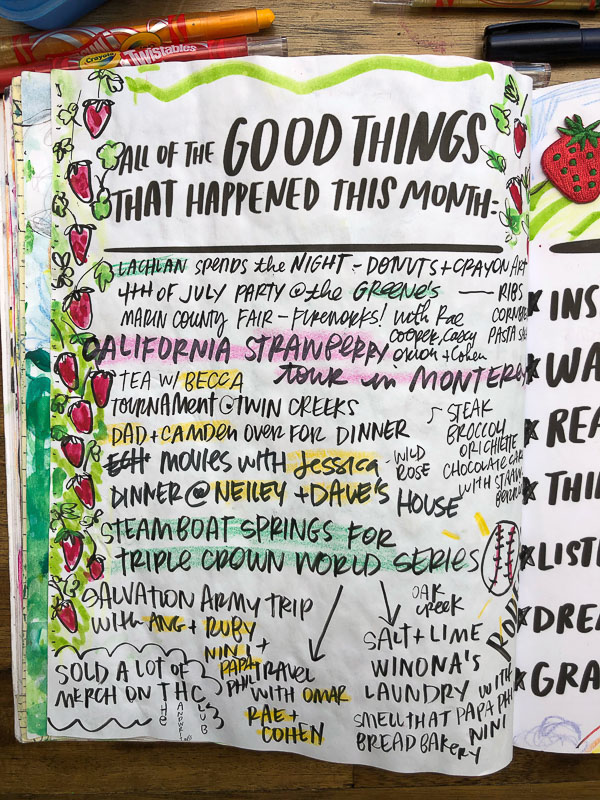 Crayola TWISTABLES
ALL OF THE GOOD THINGS
THAT HAPPENED THIS MONTH-
LACHLAN spends the NIGHT - DONUTS + CRAYON ART
4TH OF JULY PARTY @ the GREENE'S — RIBS
CORNBR
PASTA SA
MARIN COUNTY FAIR - FIREWORKS! with Rae
cooper, casey
omon + Cohen
CALIFORNIA STRAWBERRY
tour in MONTEREY
TEA W/ BECCA
TOURNAMENT @ TWIN CREEKS
DAD + CAMDEN OVER FOR DINNER
STEAK
BROCCOLI
ORICHIETTE
CHOCOLATE CAKE
WITH STRAW
MOVIES WITH Jessica
WILD
ROSE
DINNER @ NEILEY + DAVE'S HOUSE
STEAMBOAT SPRINGS FOR
TRIPLE CROWN WORLD SERIES
SALVATION ARMY TRIP
WITH ANG + RUBY
NINI +
PAPA
PHIL
TRAVEL
WITH OMAR
RAE +
COHEN
OAK
CREEK
SALT + LIME
WINONA'S
LAUNDRY WITH
PAPA PHIL
NINI
SMELL THAT
BREAD BAKERY
SOLD A LOT OF
MERCH ON THC
THE
CLUB
INS
WA
REA
THI
LIST
DREA
GRA